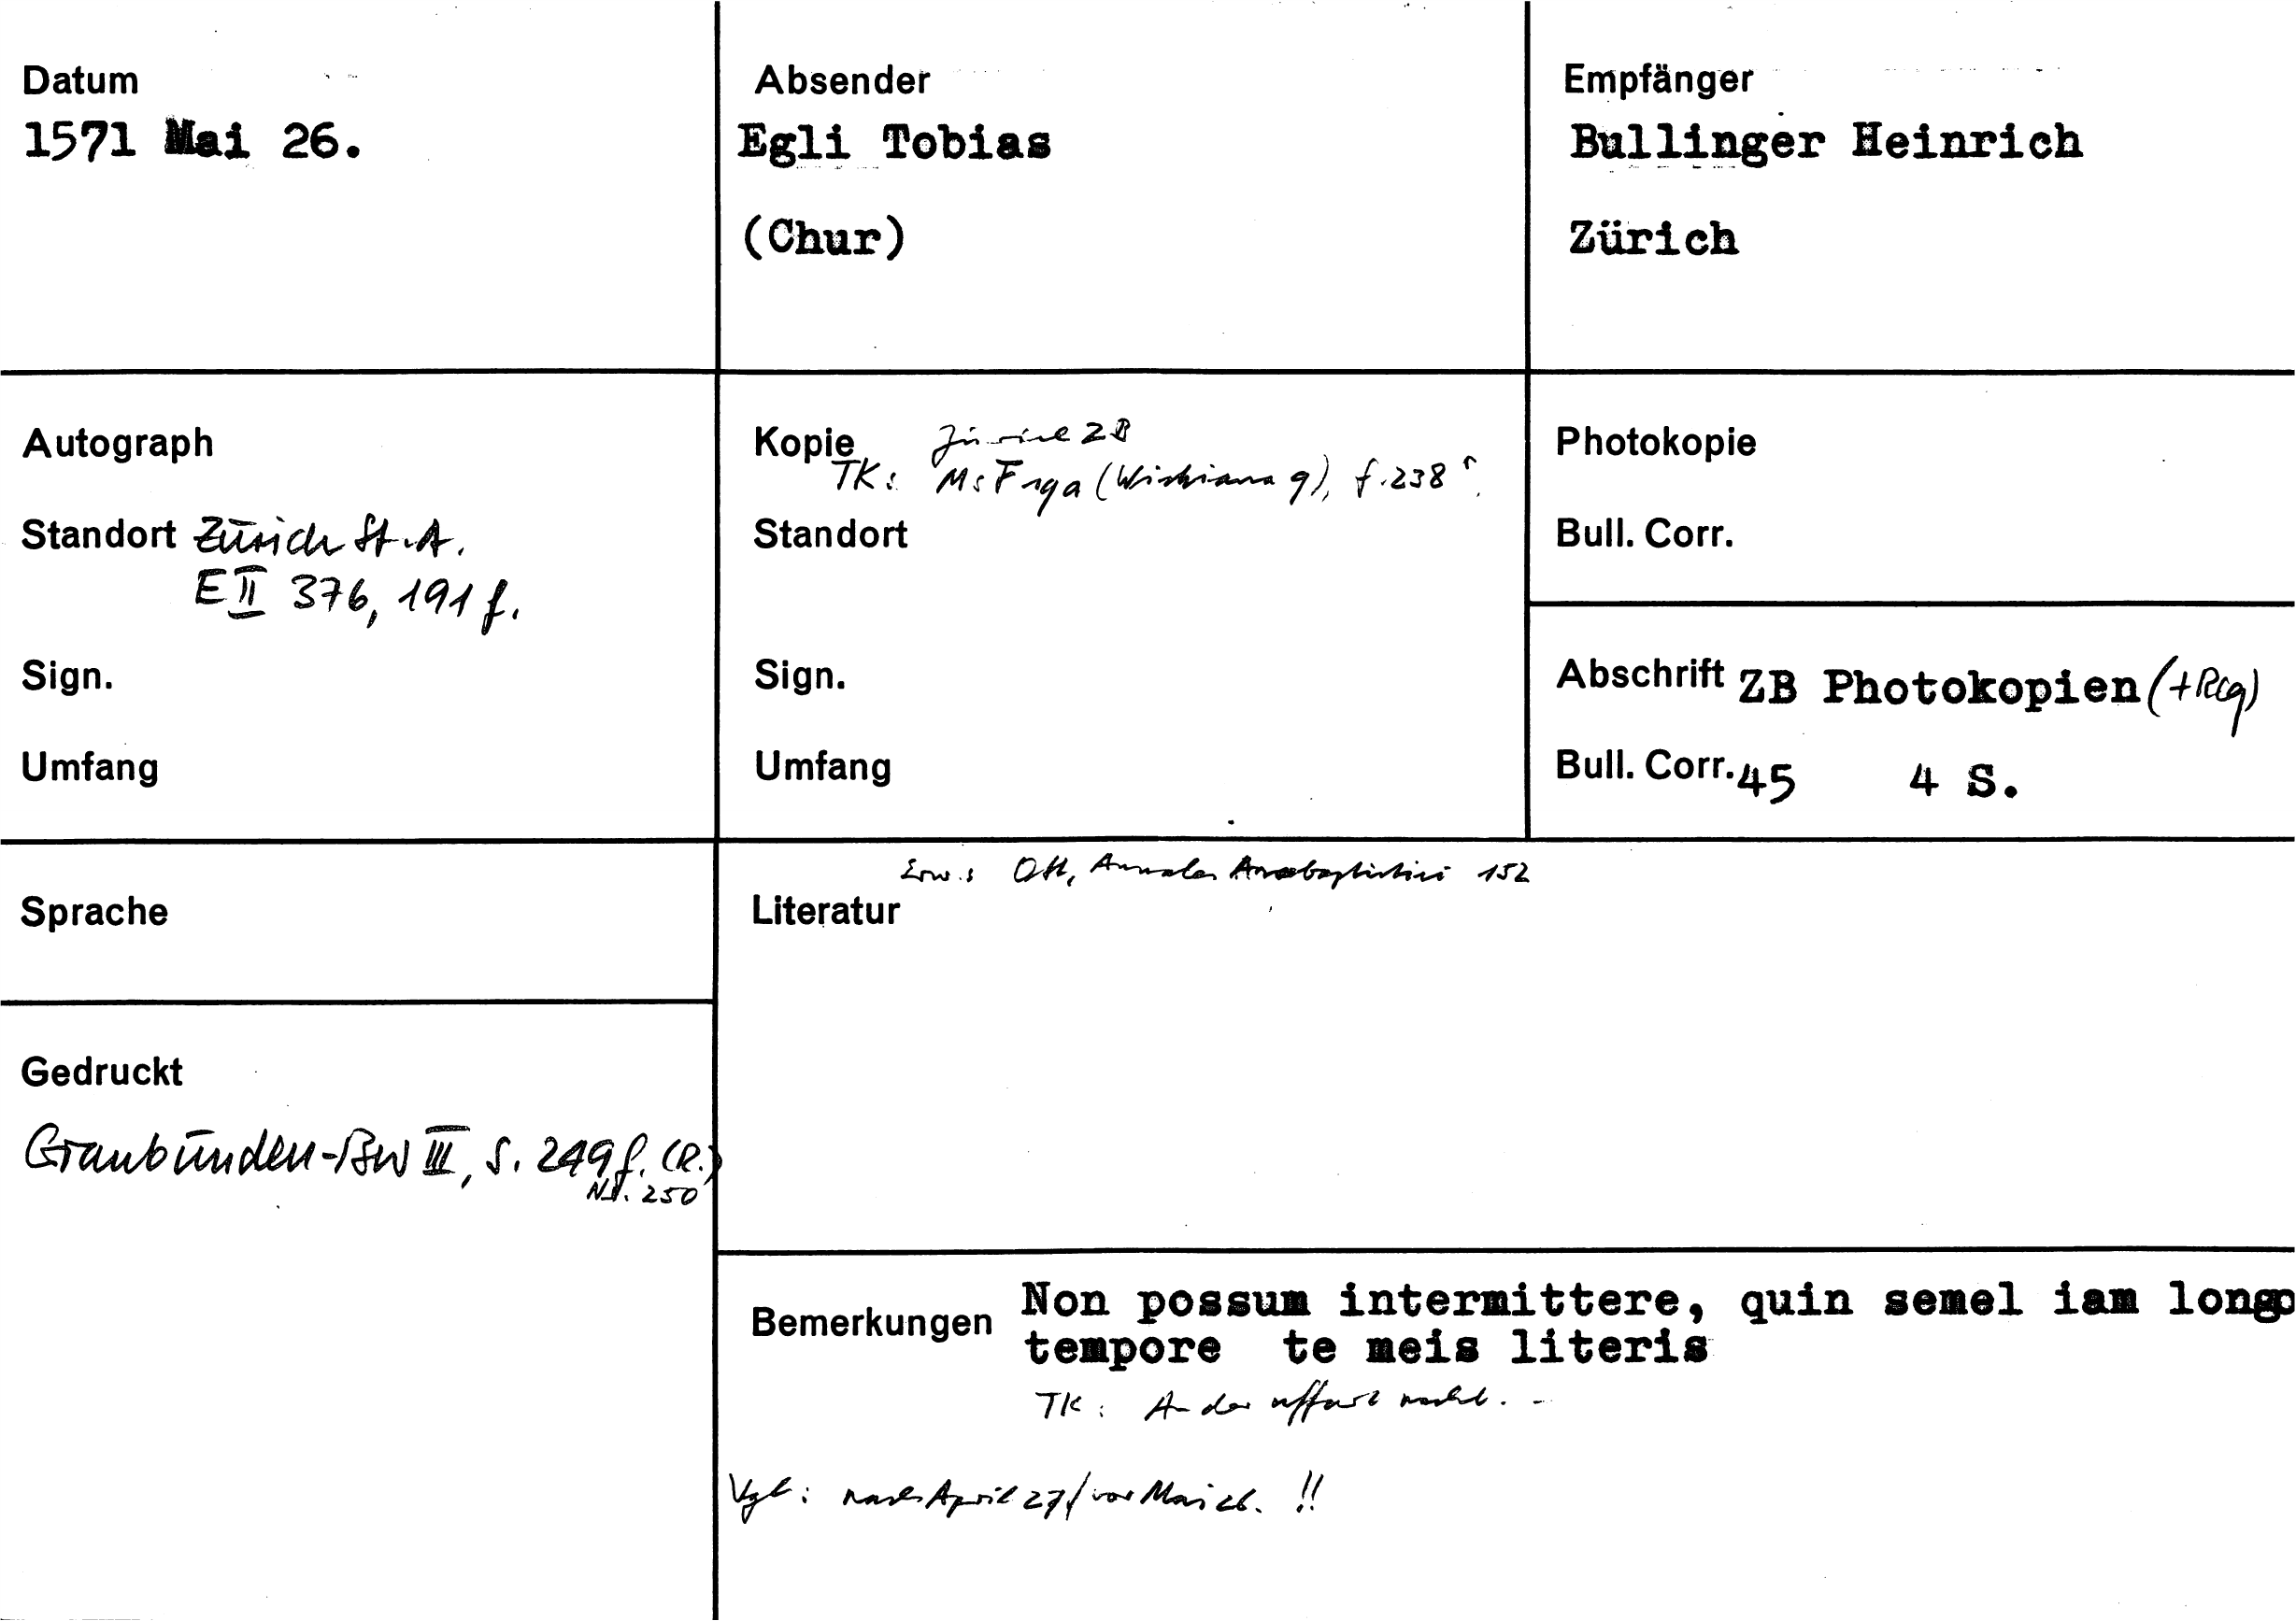 Datum
1571 Mai 26.
Absender
Egli Tobias
(Chur)
Empfänger
Bullinger Heinrich
Zürich
Autograph
Standort Zürich St.A.
E II 376, 191 f.
Sign.
Umfang
Kopie Zürich ZB
TK: Ms F 19a (Wickiana 9), f. 238 r.
Standort
Sign.
Umfang
Photokopie
Bull. Corr.
Abschrift ZB Photokopien (+Reg)
Bull. Corr. 45 4 S.
Sprache
Gedruckt
Graubünden-BW III, S. 249 f. (R.)
Nr. 250
Erw.: Ott, Annales Anabaptistici 152
Literatur
Bemerkungen Non possum intermittere, quin semel iam longo
tempore te meis literis
TK: An der uffart nacht. -
Vgl.: nach April 27/vor Mai 26. !!